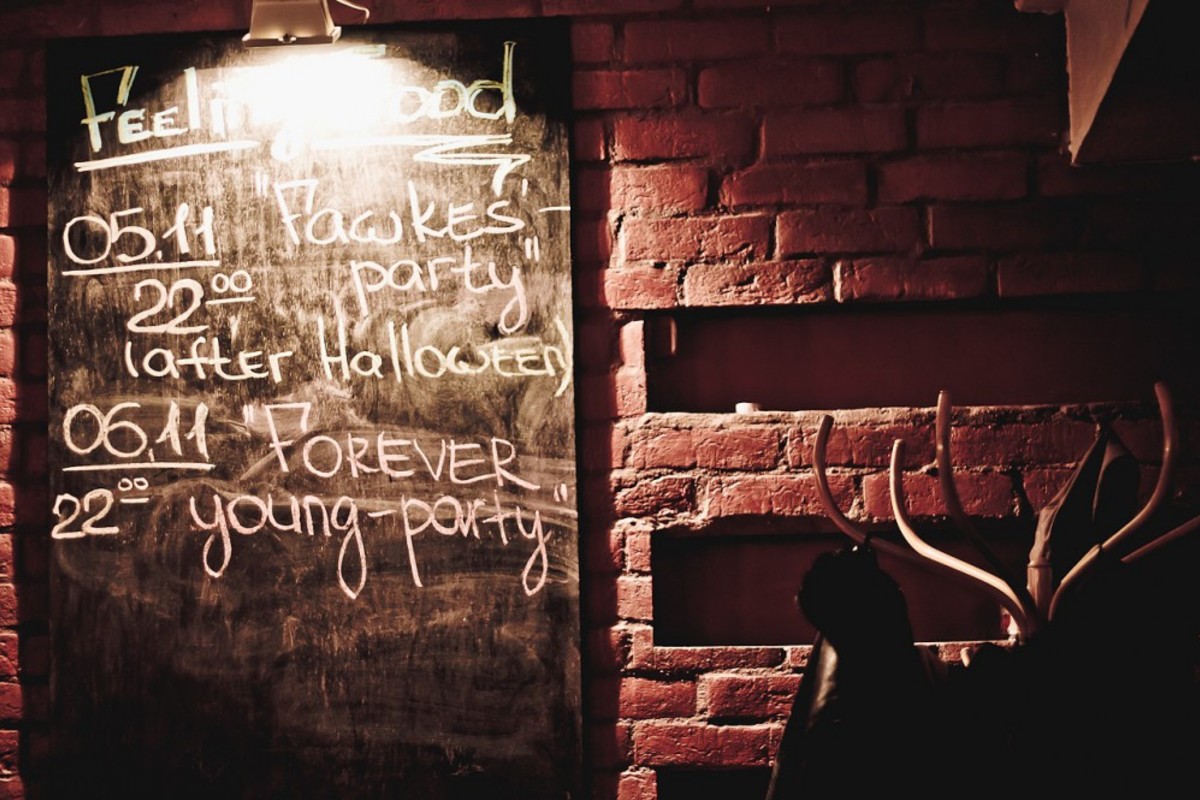 Feeling good
05.11 "Fawkes -
22⁰⁰ party"
(after Halloween)
06.11 "Forever
22⁰⁰ young-party"